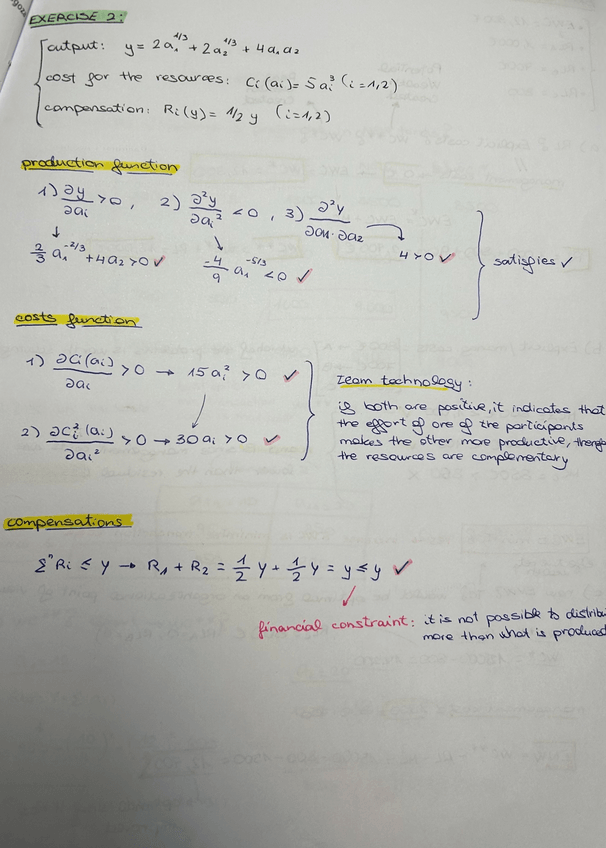 EXERCISE 2:
output: y = 2a₁^1/3 + 2a₂^1/3 + 4a₁a₂
cost for the resources: Ci(ai) = 5ai³ (i=1,2)
compensation: Ri(y) = 1/2 y (i=1,2)
production function
1) ∂y/∂ai > 0, 2) ∂²y/∂ai² < 0, 3) ∂²Y/∂a1·∂a2
2/3 a₁^-2/3 + 4a₂ > 0 ✓ -4/9 a₁^-5/3 < 0 ✓ 4 > 0 ✓ satisfies ✓
costs function
1) ∂Ci(ai)/∂ai > 0 → 15ai² > 0 ✓
2) ∂Ci²(ai)/∂ai² > 0 → 30ai > 0 ✓
Team technology:
if both are positive, it indicates that
the effort of one of the participants
makes the other more productive,
the resources are complementary
compensations
Σⁿ Ri ≤ Y → R₁ + R₂ = 1/2 Y + 1/2 Y = y ≤ y ✓
financial constraint: it is not possible to
more than what is